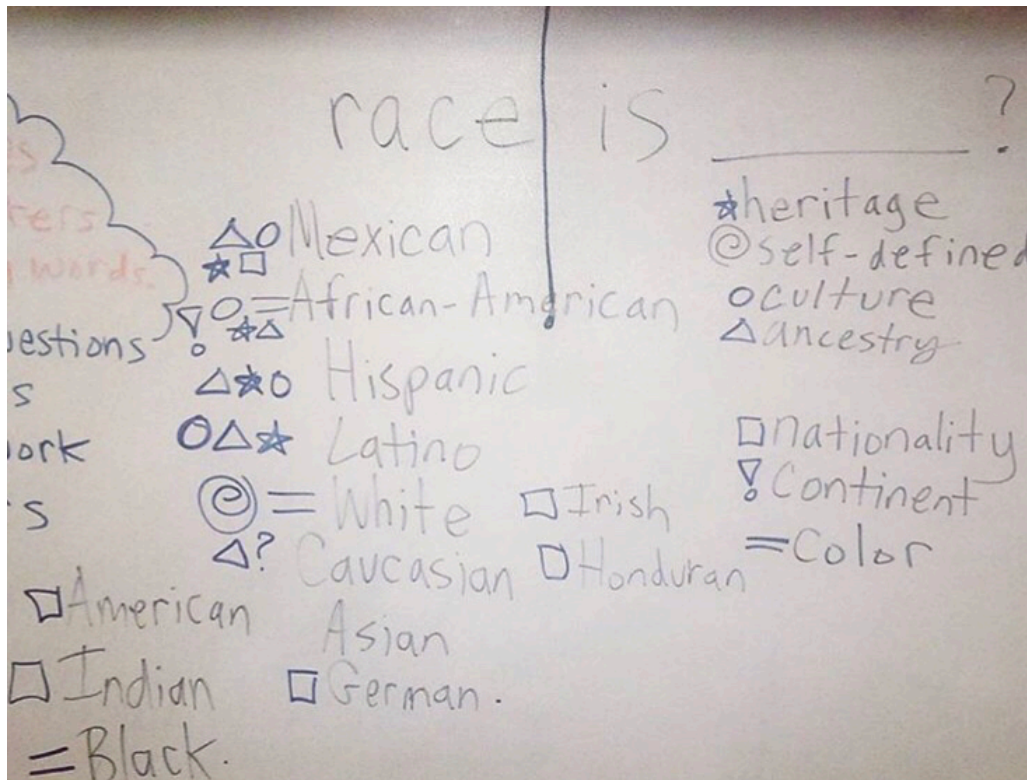 race is ______?
Mexican
African-American
Hispanic
Latino
White
Caucasian
Asian
Irish
Honduran
American
Indian
German.
Black.
heritage
self-defined
culture
ancestry
nationality
Continent
=Color
words.